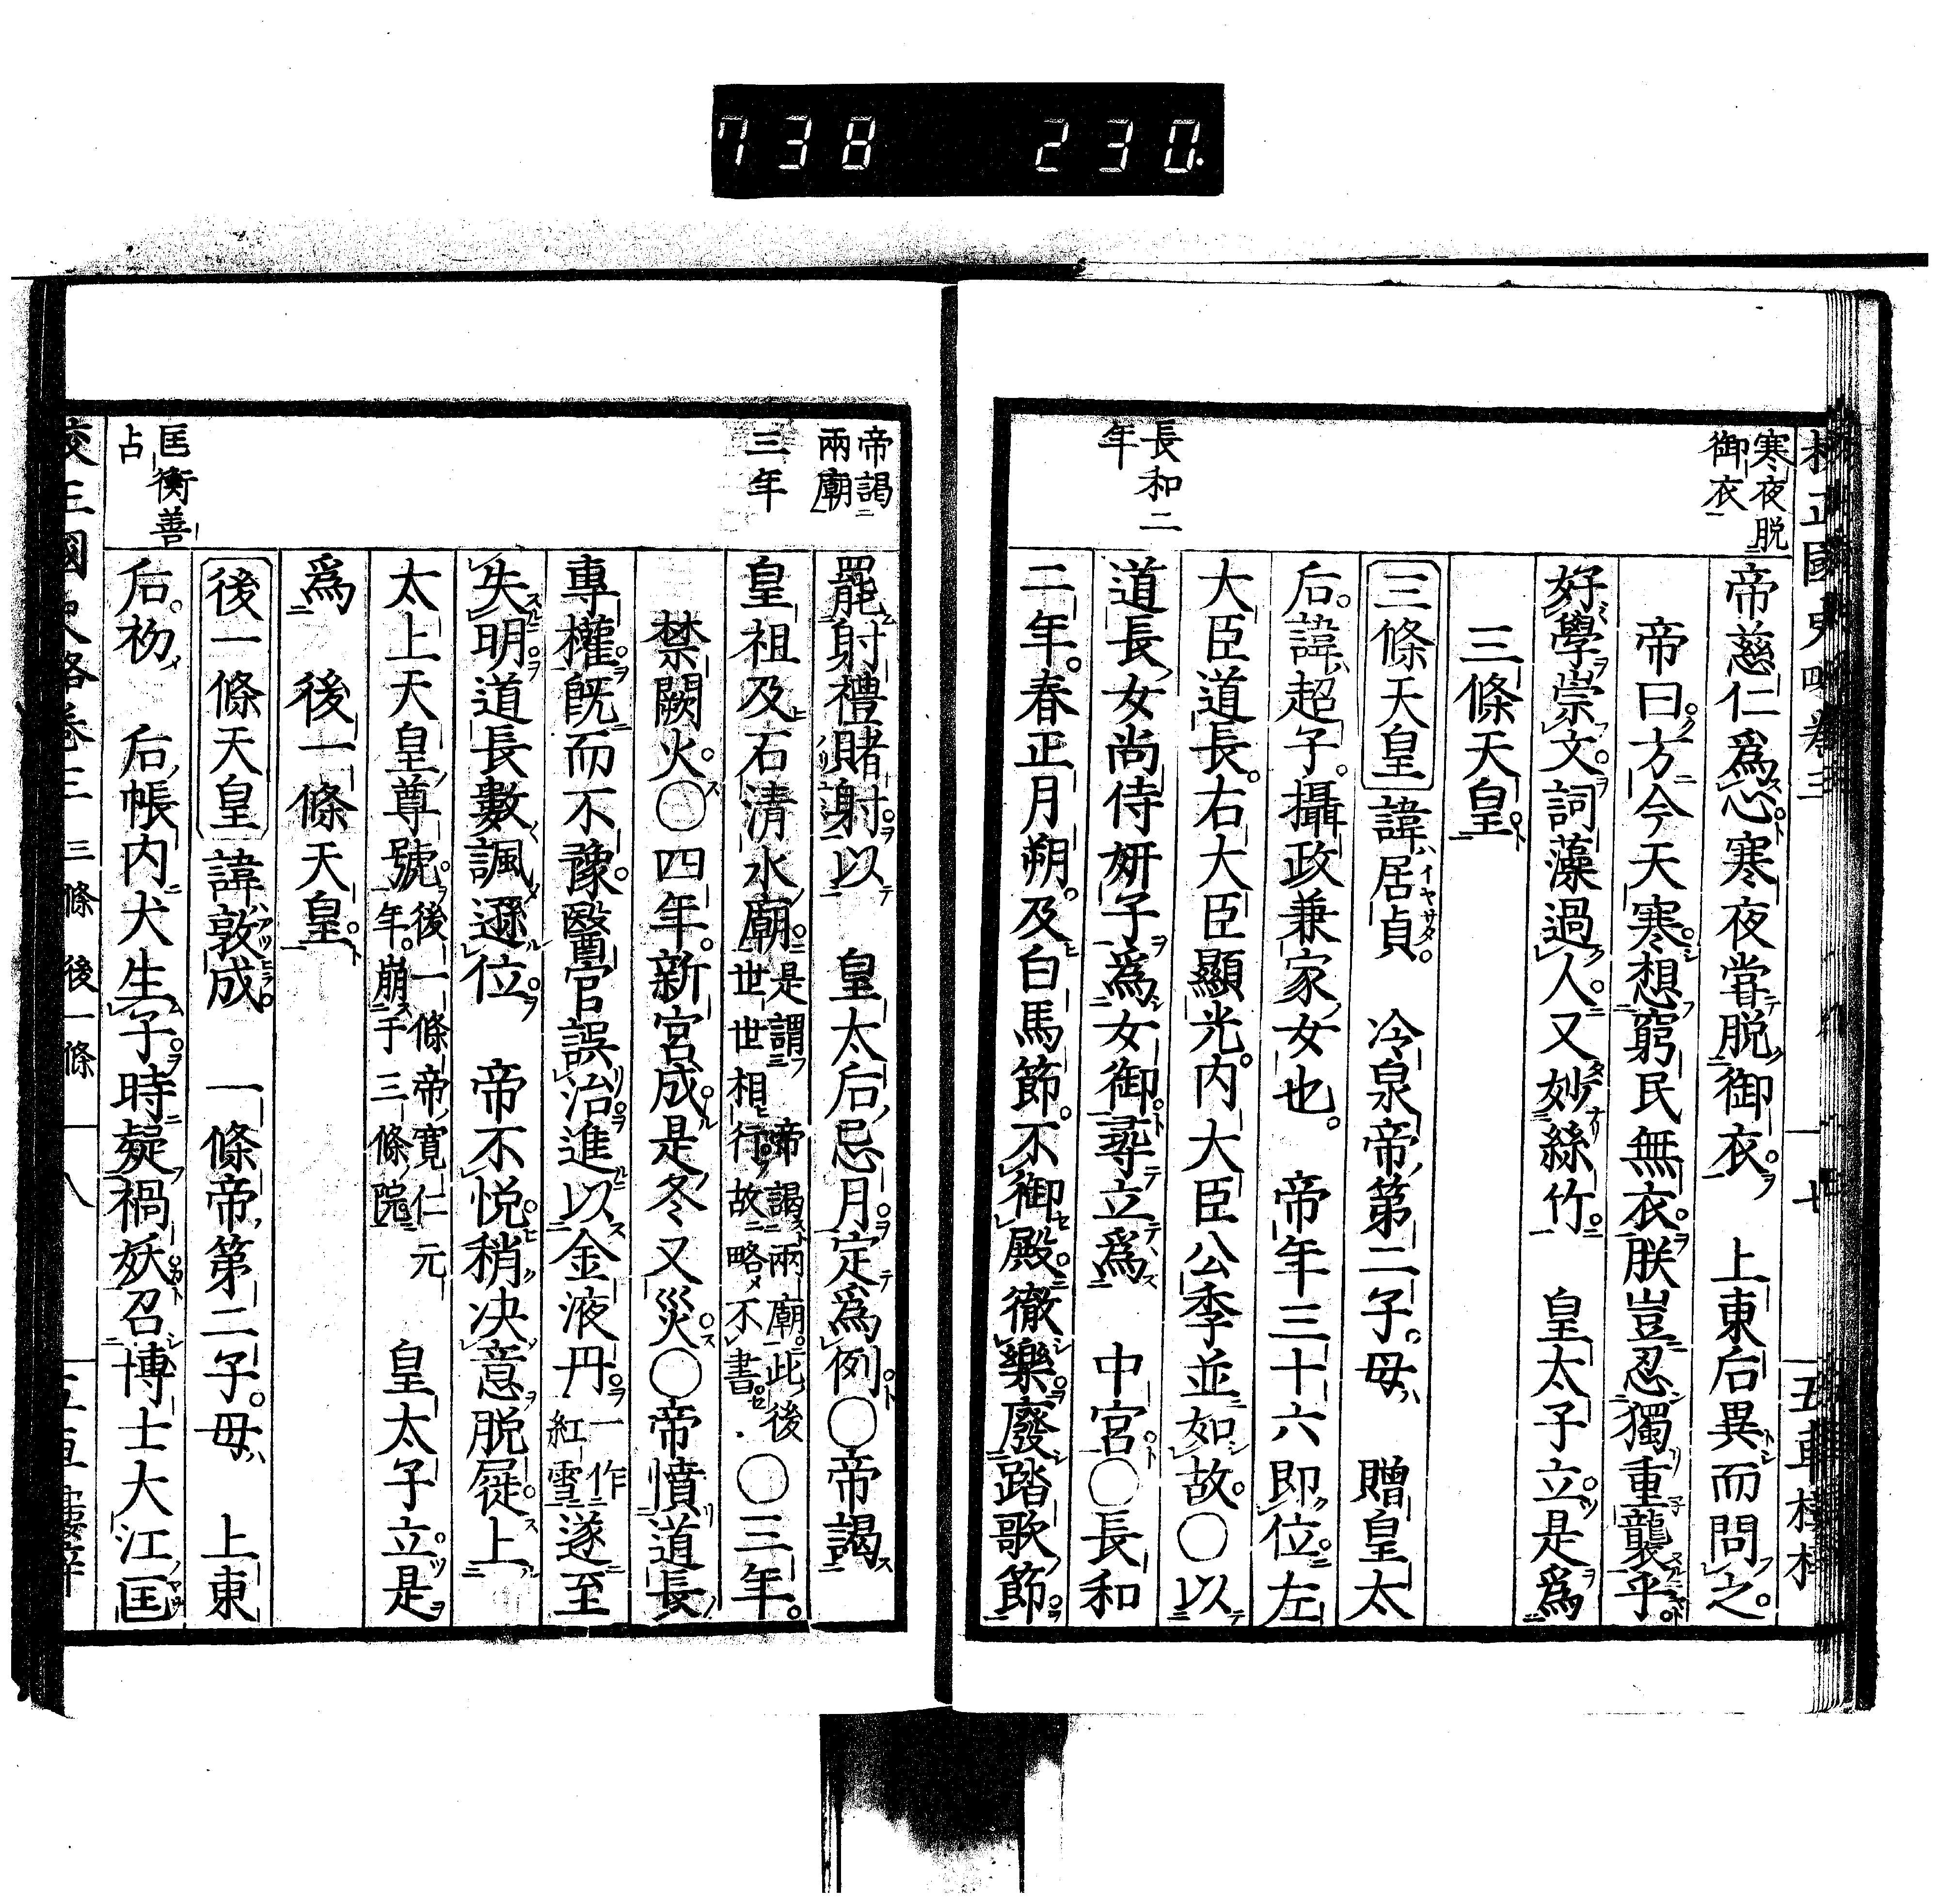 738 230.
校正國史略卷三 十七 五車樓梓
寒夜脱
御衣
帝慈仁爲心寒夜甞脱御衣 上東后異而問之
帝曰方今天寒想窮民無衣朕豈忍獨重襲乎
好學崇文詞藻過人又妙絲竹 皇太子立是爲
三條天皇
三條天皇 諱居貞 冷泉帝第二子母 贈皇太
后諱超子攝政兼家女也 帝年三十六即位左
大臣道長右大臣顯光内大臣公季並如故○以
道長女尚侍妍子爲女御尋立爲 中宮○長和
長和二
年
二年春正月朔及白馬節不御殿徹樂廢踏歌節
帝謁
兩廟
罷射禮賭射以 皇太后忌月定爲例○帝謁
三年
皇祖及石清水廟是謂帝謁兩廟此後世世相行故略不書○三年
禁闕火○四年新宮成是冬又災○帝憤道長
專權既而不豫醫官誤治進以金液丹一作紅雪遂至
失明道長數諷遜位 帝不悦稍决意脱屣上
太上天皇尊號後一條帝寛仁元年崩于三條院 皇太子立是
爲 後一條天皇
後一條天皇 諱敦成 一條帝第二子母 上東
匡衡善
占
后初 后帳内犬生子時疑禍妖召博士大江匡
校正國史略卷三 三條 後一條 十八 五車樓梓